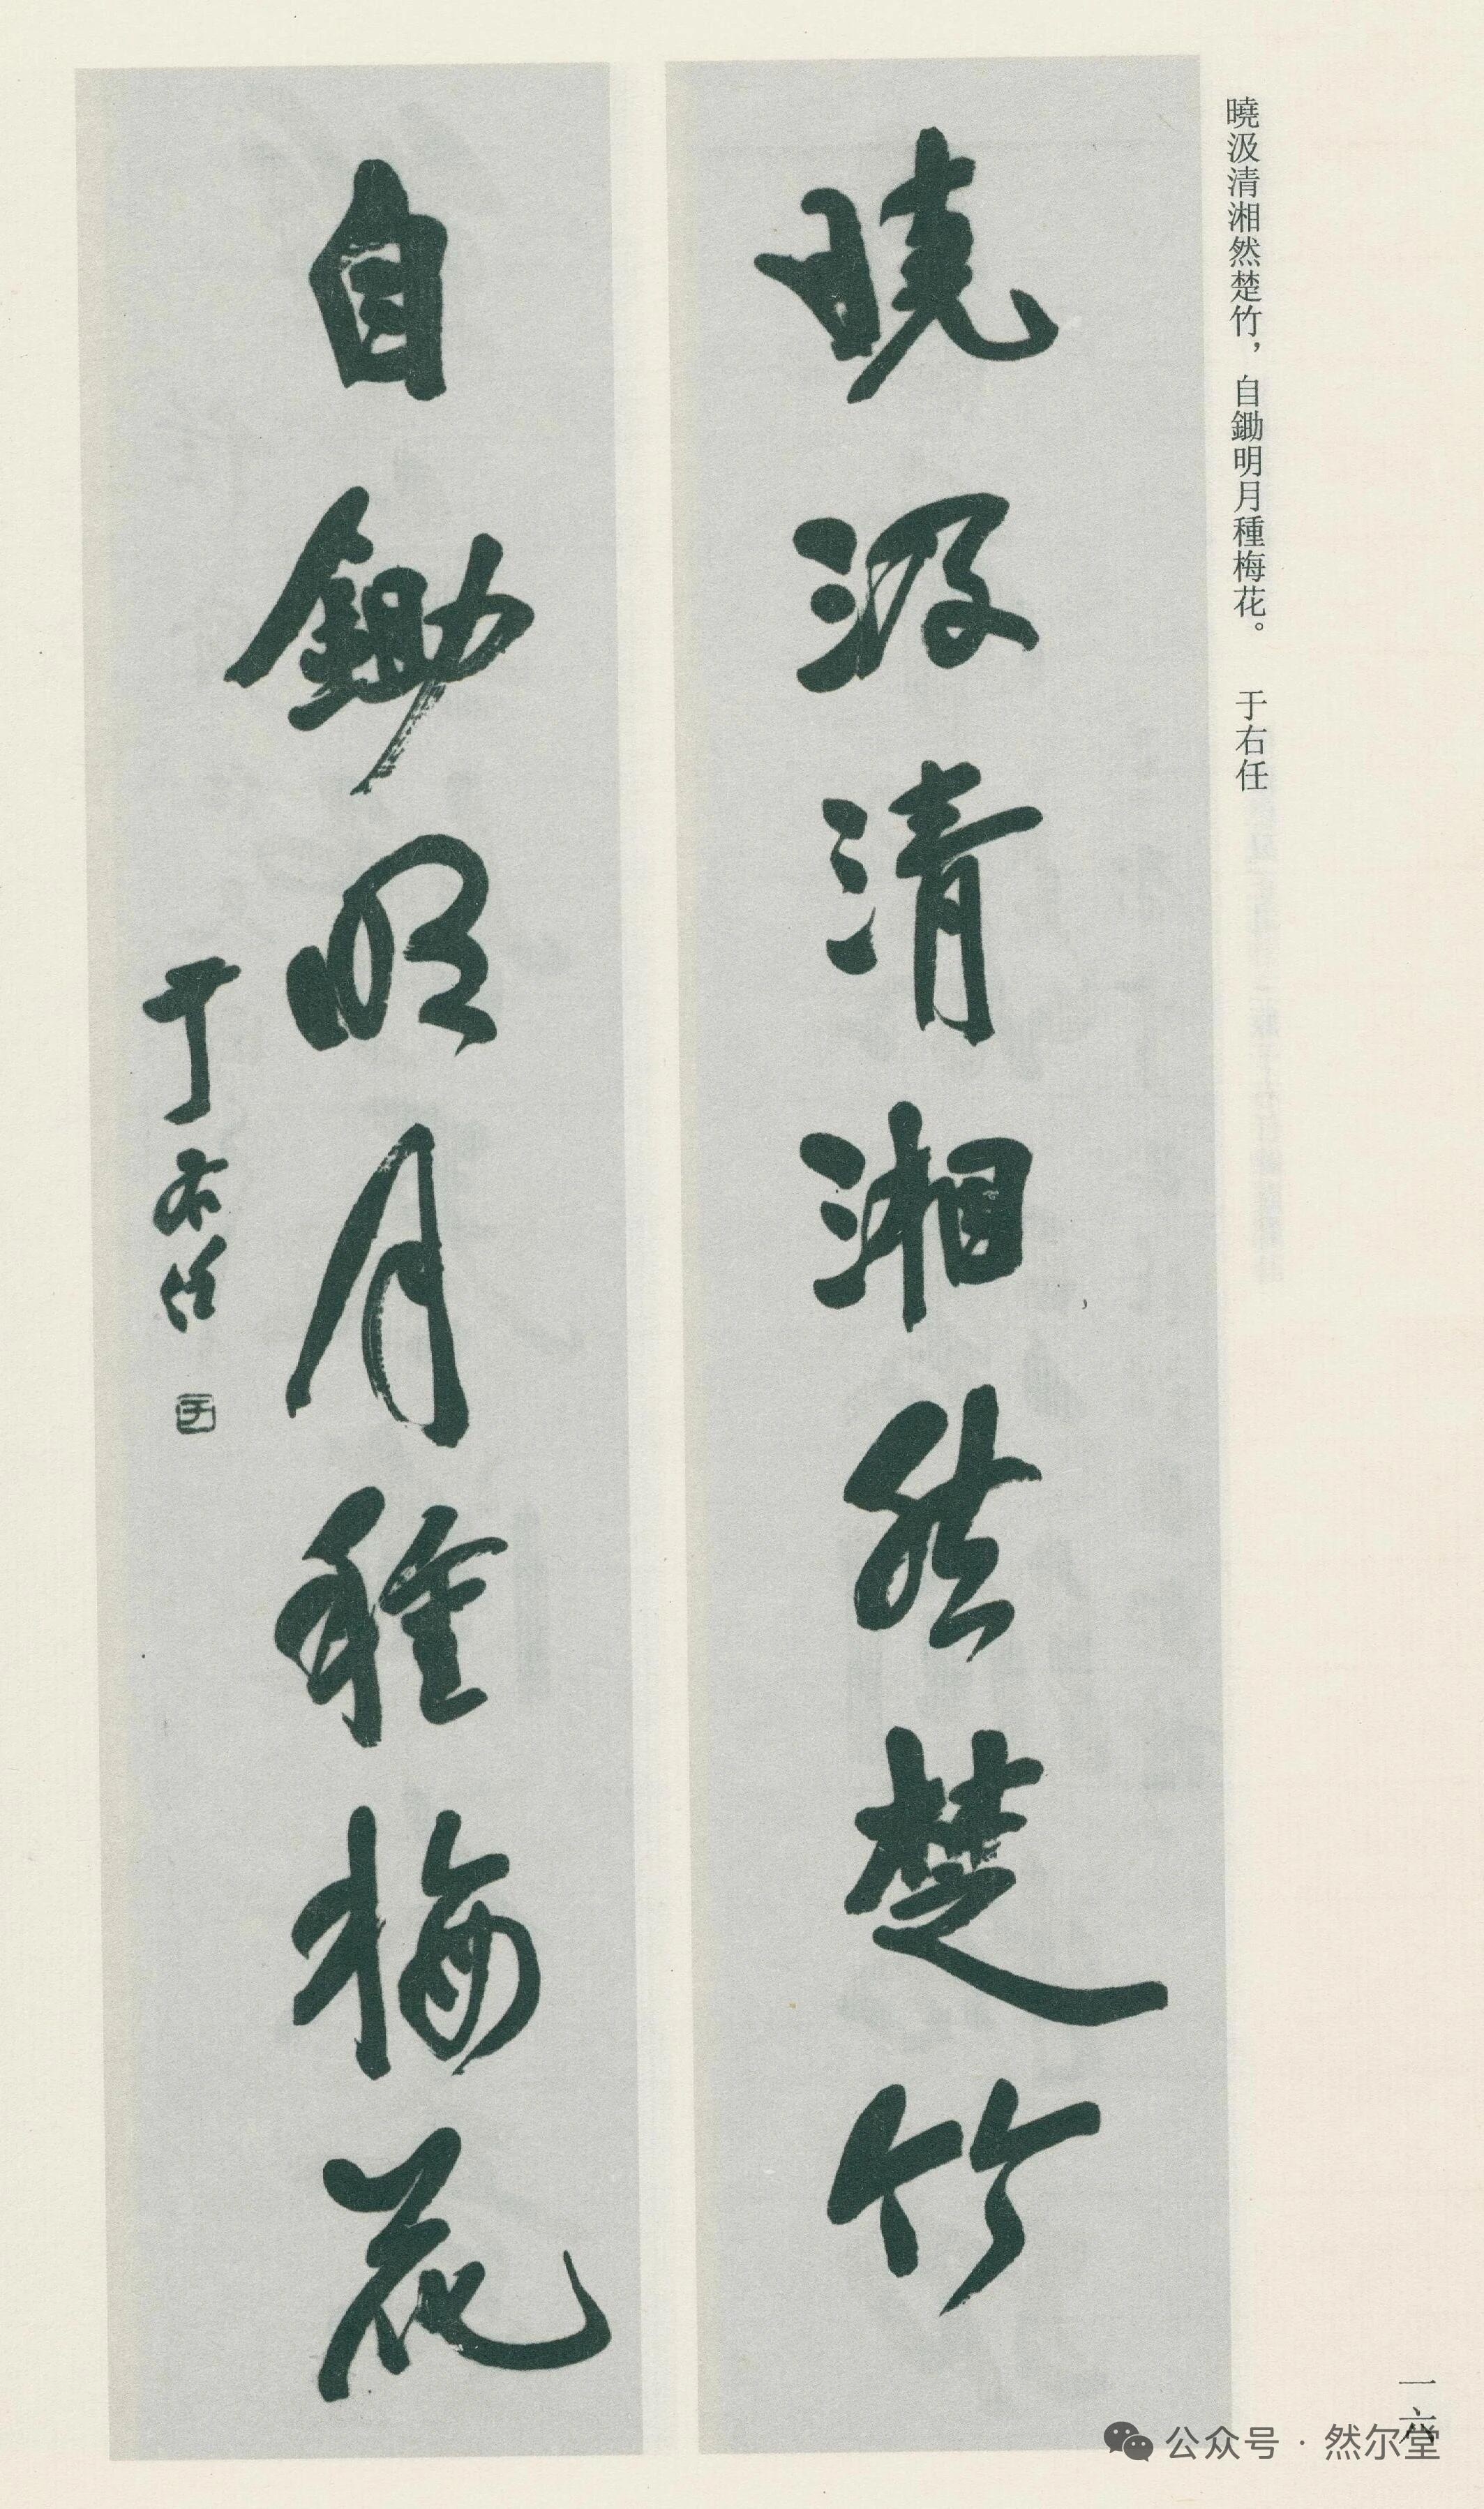 曉汲清湘然楚竹，自鋤明月種梅花。 于右任
曉汲清湘然楚竹
自鋤明月種梅花
于右任
于
一六
公众号 · 然尔堂